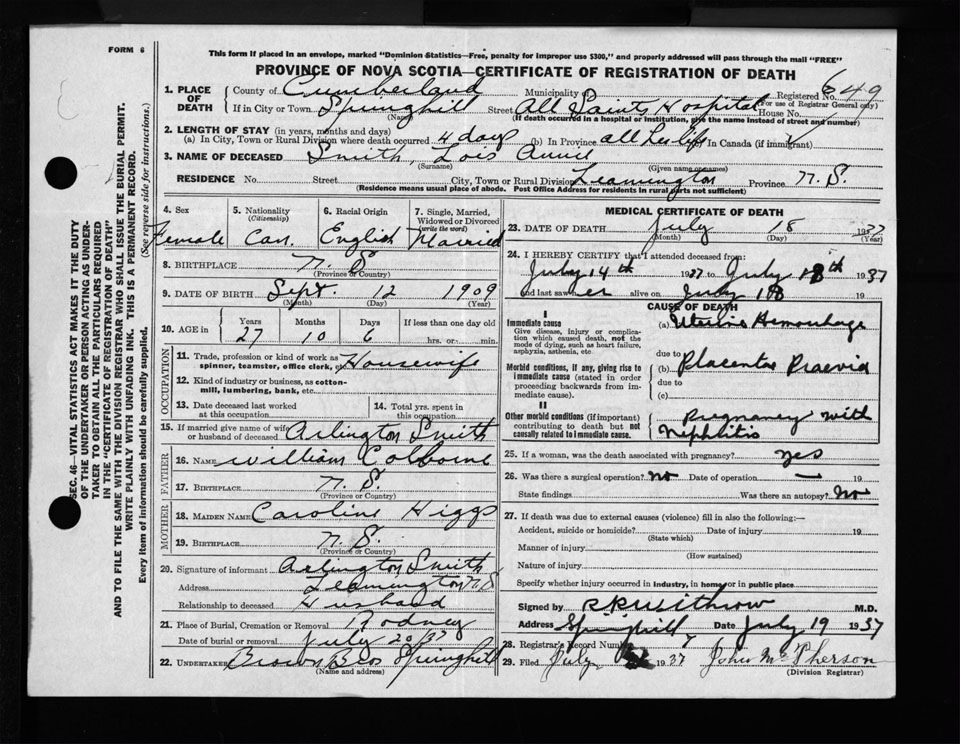 FORM 6
This form if placed in an envelope, marked "Dominion Statistics—Free, penalty for improper use $300," and properly addressed will pass through the mail "FREE"
PROVINCE OF NOVA SCOTIA—CERTIFICATE OF REGISTRATION OF DEATH
1. PLACE OF DEATH County of Cumberland Municipality of Registered No. 649
(For use of Registrar General only)
If in City or Town Springhill Street All Saints Hospital House No.
(Name) (If death occurred in a hospital or institution, give the name instead of street and number)
2. LENGTH OF STAY (in years, months and days)
(a) In City, Town or Rural Division where death occurred 4 days (b) In Province all her life In Canada (if immigrant)
3. NAME OF DECEASED Smith, Lois Annie
(Surname) (Given name or names)
RESIDENCE No. Street City, Town or Rural Division Leamington Province N. S.
(Residence means usual place of abode. Post Office Address for residents in rural parts not sufficient)
SEC. 46—VITAL STATISTICS ACT MAKES IT THE DUTY
OF THE UNDERTAKER OR PERSON ACTING AS UNDER-
TAKER TO OBTAIN ALL THE PARTICULARS REQUIRED
IN THE "CERTIFICATE OF REGISTRATION OF DEATH"
AND TO FILE THE SAME WITH THE DIVISION REGISTRAR WHO SHALL ISSUE THE BURIAL PERMIT.
WRITE PLAINLY WITH UNFADING INK. THIS IS A PERMANENT RECORD.
Every item of information should be carefully supplied. (See reverse side for instructions.)
4. Sex 5. Nationality 6. Racial Origin 7. Single, Married,
(Citizenship) Widowed or Divorced
(write the word)
Female Can. English Married
8. BIRTHPLACE N. S
(Province or Country)
9. DATE OF BIRTH Sept. 12 1909
(Month) (Day) (Year)
10. AGE in Years Months Days If less than one day old
27 10 6 hrs. or min.
OCCUPATION
11. Trade, profession or kind of work as Housewife
spinner, teamster, office clerk, etc.
12. Kind of industry or business, as cotton-
mill, lumbering, bank, etc.
13. Date deceased last worked 14. Total yrs. spent in
at this occupation this occupation
15. If married give name of wife
or husband of deceased Arlington Smith
FATHER
16. NAME William Colborne
17. BIRTHPLACE N. S.
(Province or Country)
MOTHER
18. MAIDEN NAME Caroline Higgs
19. BIRTHPLACE N. S.
(Province or Country)
20. Signature of informant Arlington Smith
Address Leamington N.S
Relationship to deceased Husband
21. Place of Burial, Cremation or Removal Rodney
Date of burial or removal July 20/37
22. UNDERTAKER Brown Bros Springhill
(Name and address)
MEDICAL CERTIFICATE OF DEATH
23. DATE OF DEATH July 18 1937
(Month) (Day) (Year)
24. I HEREBY CERTIFY that I attended deceased from:
July 14th 1937 to July 18th 1937
and last saw her alive on July 18 19
CAUSE OF DEATH
I
Immediate cause (a) Uterine Hemorrhage
Give disease, injury or complica-
tion which caused death, not the
mode of dying, such as heart failure,
asphyxia, asthenia, etc
due to
Morbid conditions, if any, giving rise to (b) Placenta Praevia
immediate cause (stated in order
proceeding backwards from im-
mediate cause).
due to
(c)
II
Other morbid conditions (if important) Pregnancy with
contributing to death but not
causally related to immediate cause. Nephritis
25. If a woman, was the death associated with pregnancy? yes
26. Was there a surgical operation? No Date of operation — 19
State findings Was there an autopsy? No
27. If death was due to external causes (violence) fill in also the following:—
Accident, suicide or homicide? Date of injury 19
(State which)
Manner of injury
(How sustained)
Nature of injury
Specify whether injury occurred in industry, in home or in public place
Signed by R R Withrow M.D.
Address Springhill Date July 19 1937
28. Registrar's Record Number 7
29. Filed July 1937 John McPherson
(Division Registrar)